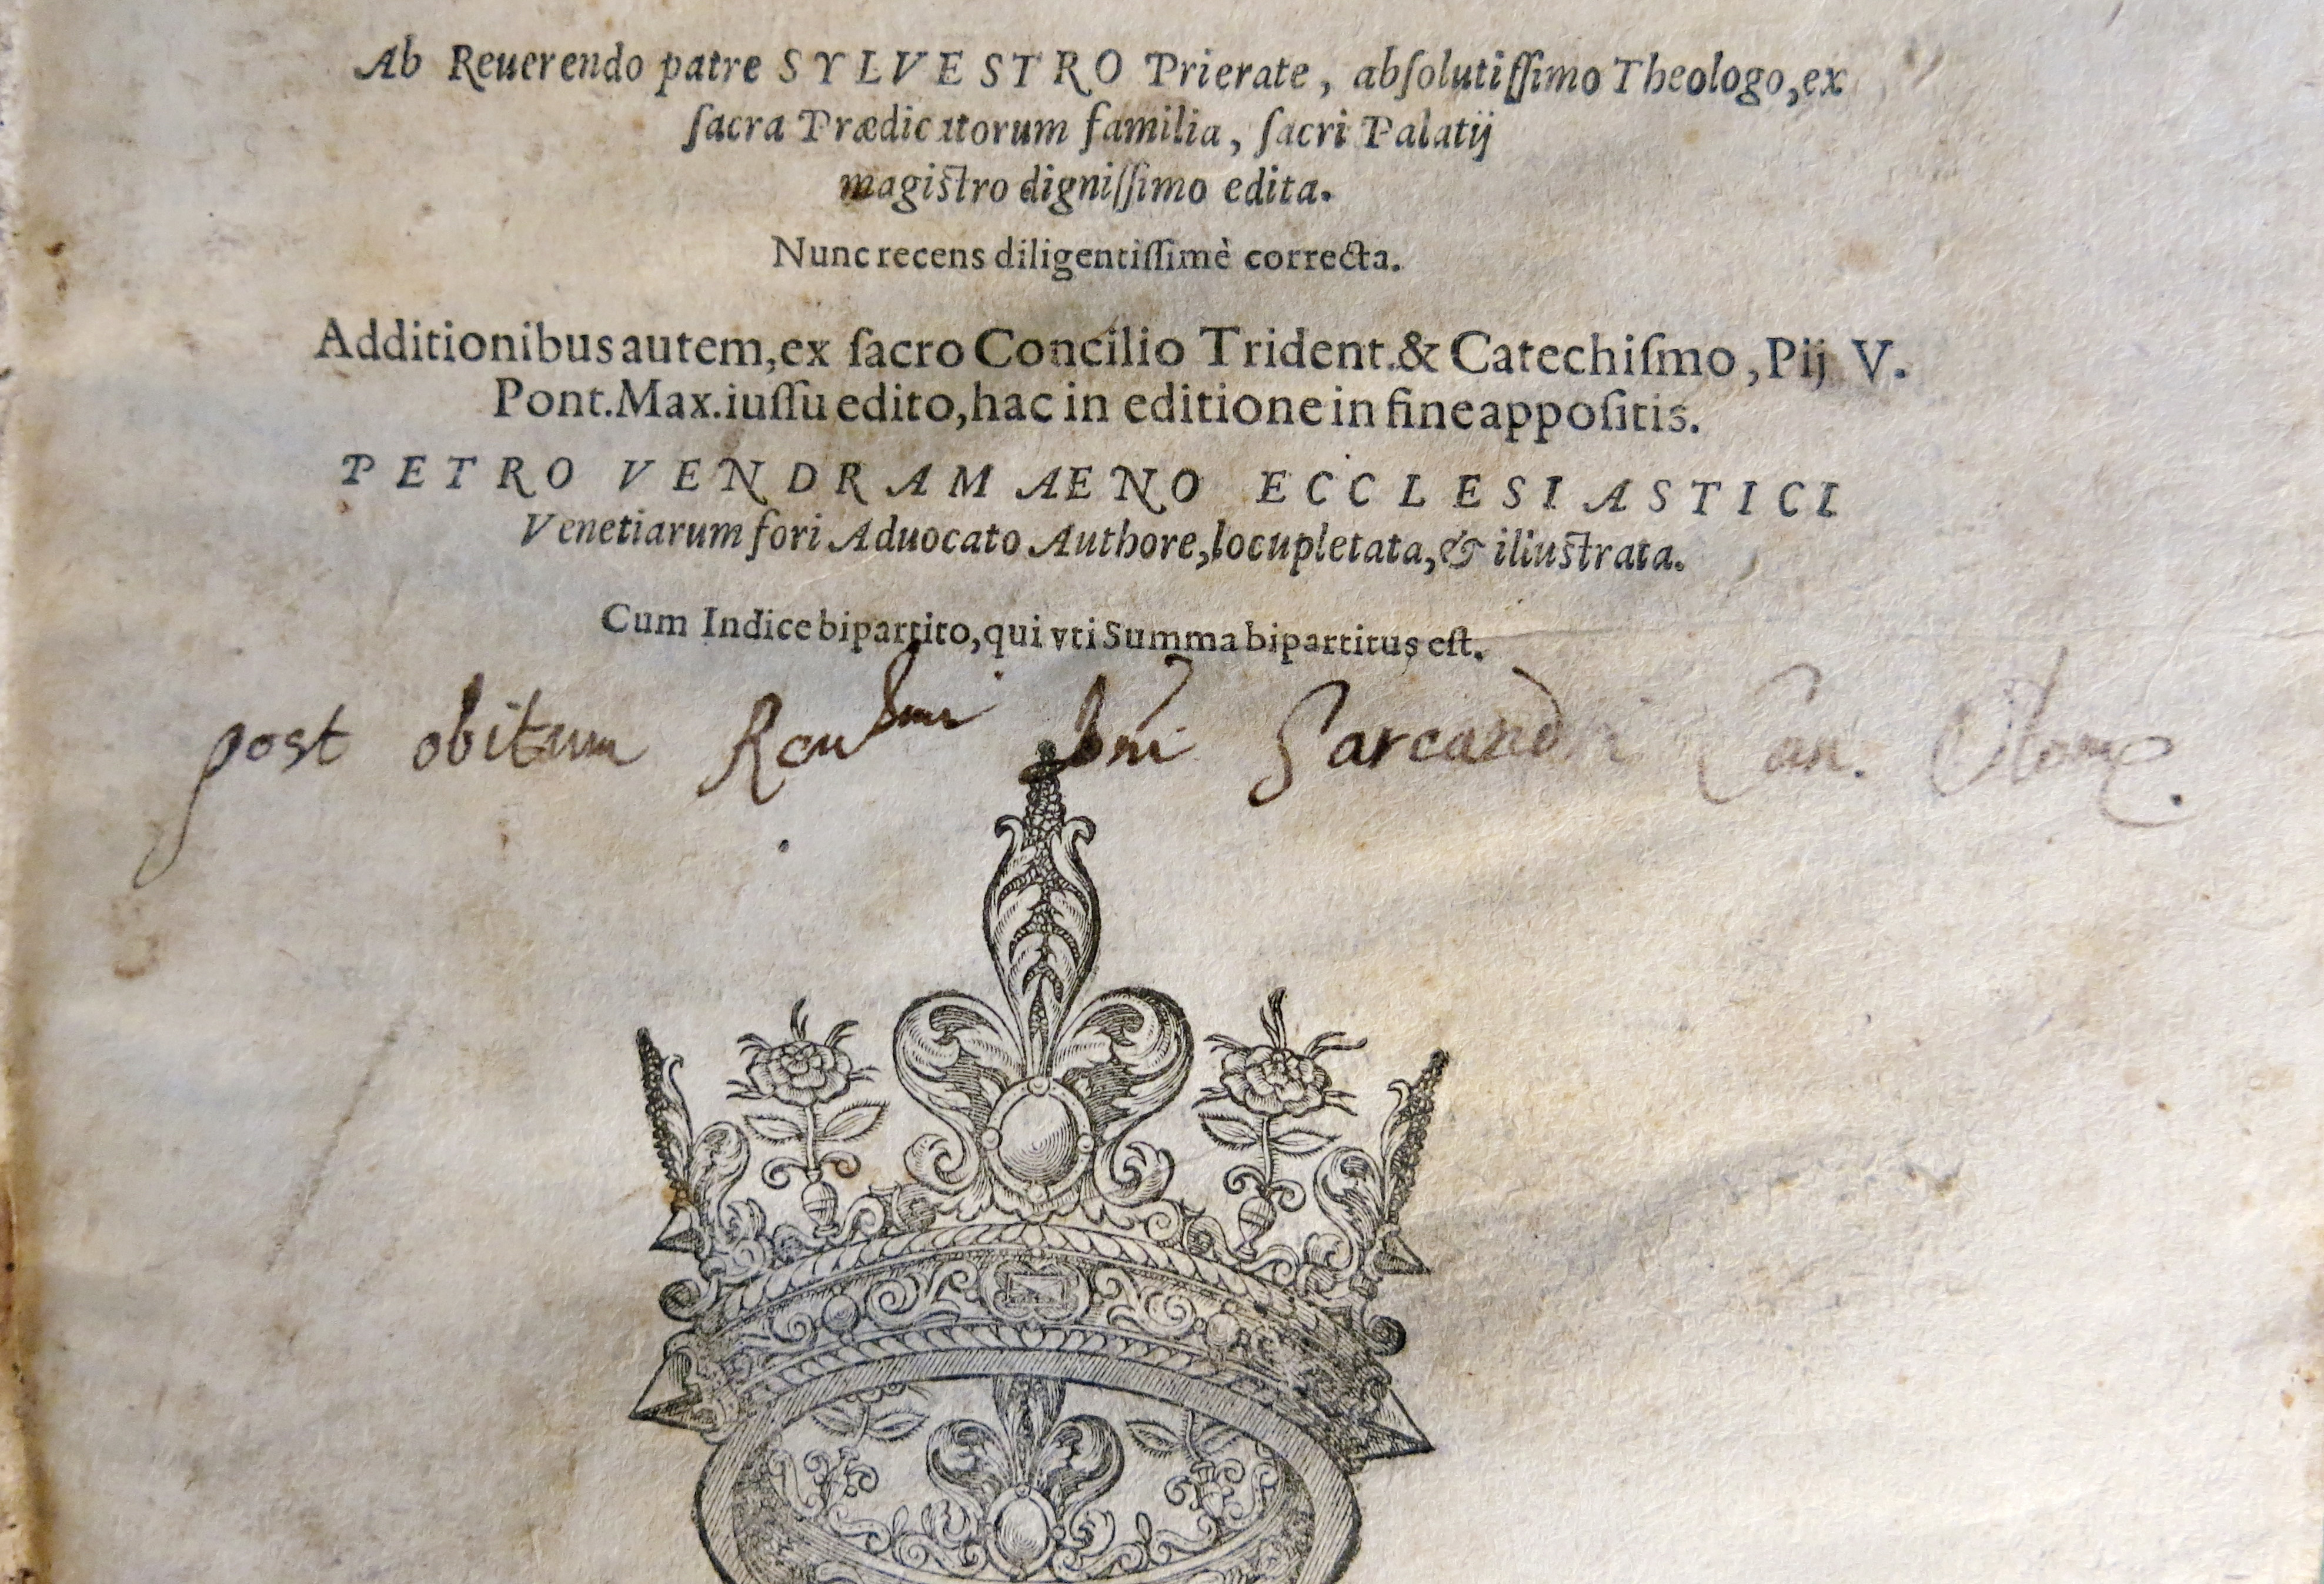 Ab Reuerendo patre SYLVESTRO Prierate, abſolutiſſimo Theologo, ex
ſacra Prædicatorum familia, ſacri Palatij
magiſtro digniſſimo edita.
Nunc recens diligentiſſimè correcta.
Additionibus autem, ex ſacro Concilio Trident. & Catechiſmo, Pij V.
Pont. Max. iuſſu edito, hac in editione in fine appoſitis.
PETRO VENDRAMAENO ECCLESIASTICI
Venetiarum fori Aduocato Authore, locupletata, & illuſtrata.
Cum Indice bipartito, qui vti Summa bipartitus eſt.
post obitum Reu Dni Sarcandri Can.